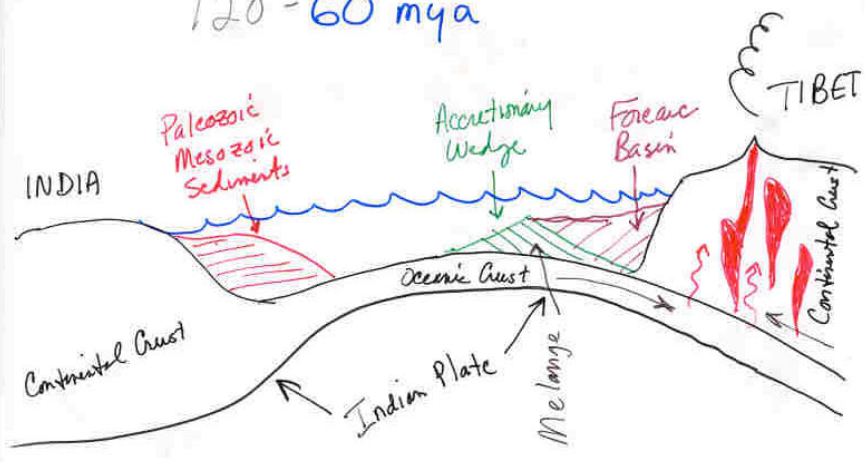 120 - 60 mya
TIBET
Paleozoic
Mesozoic
Sediments
Accretionary
Wedge
Forearc
Basin
INDIA
Oceanic Crust
Continental Crust
Continental Crust
Indian Plate
Melange